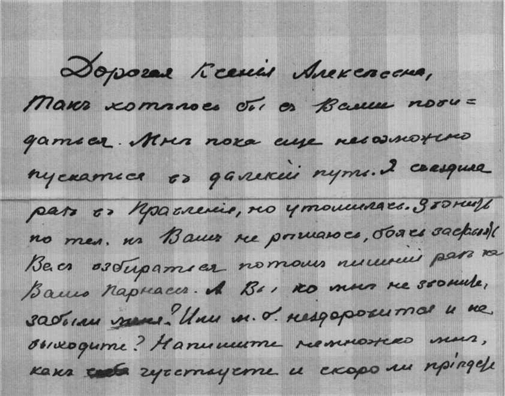 Дорогая Ксенія Алексѣевна,
Такъ хотѣлось бы съ Вами пови=
даться. Мнѣ пока еще невозможно
пускаться въ далекій путь. Я съездила
разъ въ Правленіе, но утомилась. Звонить
по тел. къ Вамъ не рѣшаюсь, боясь
Васъ взбираться потомъ лишній разъ на
Вашъ Парнасъ. А Вы, ко мнѣ не звоните,
забыли меня? Или м. б. нездоровится и не
выходите? Напишите немножко мнѣ,
какъ чувствуете и скоро ли пріѣдете